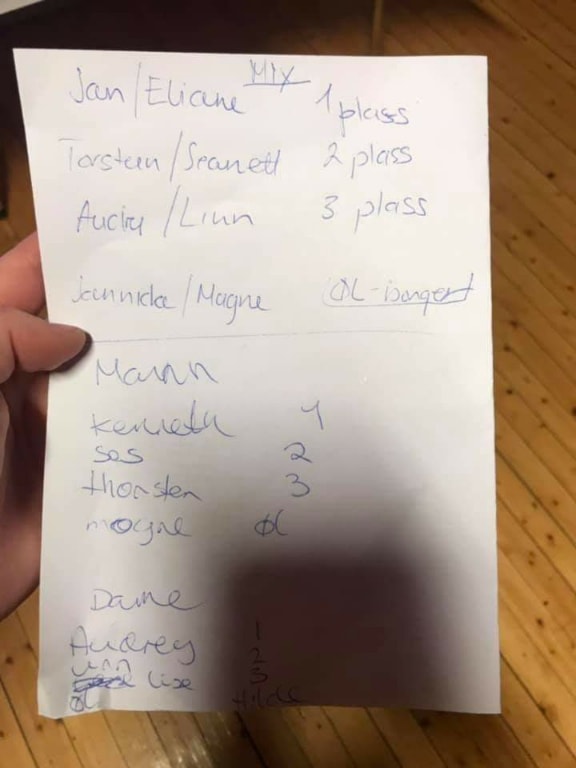 Mix
Jan/Eliane 1 plass
Torstein/Seanett 2 plass
Audry/Linn 3 plass
Jannicke/Magne ØL-
Mann
Kenneth 1
ses 2
thorsten 3
magne ØL
Dame
Audrey 1
Linn 2
Lise 3
ØL Hilde